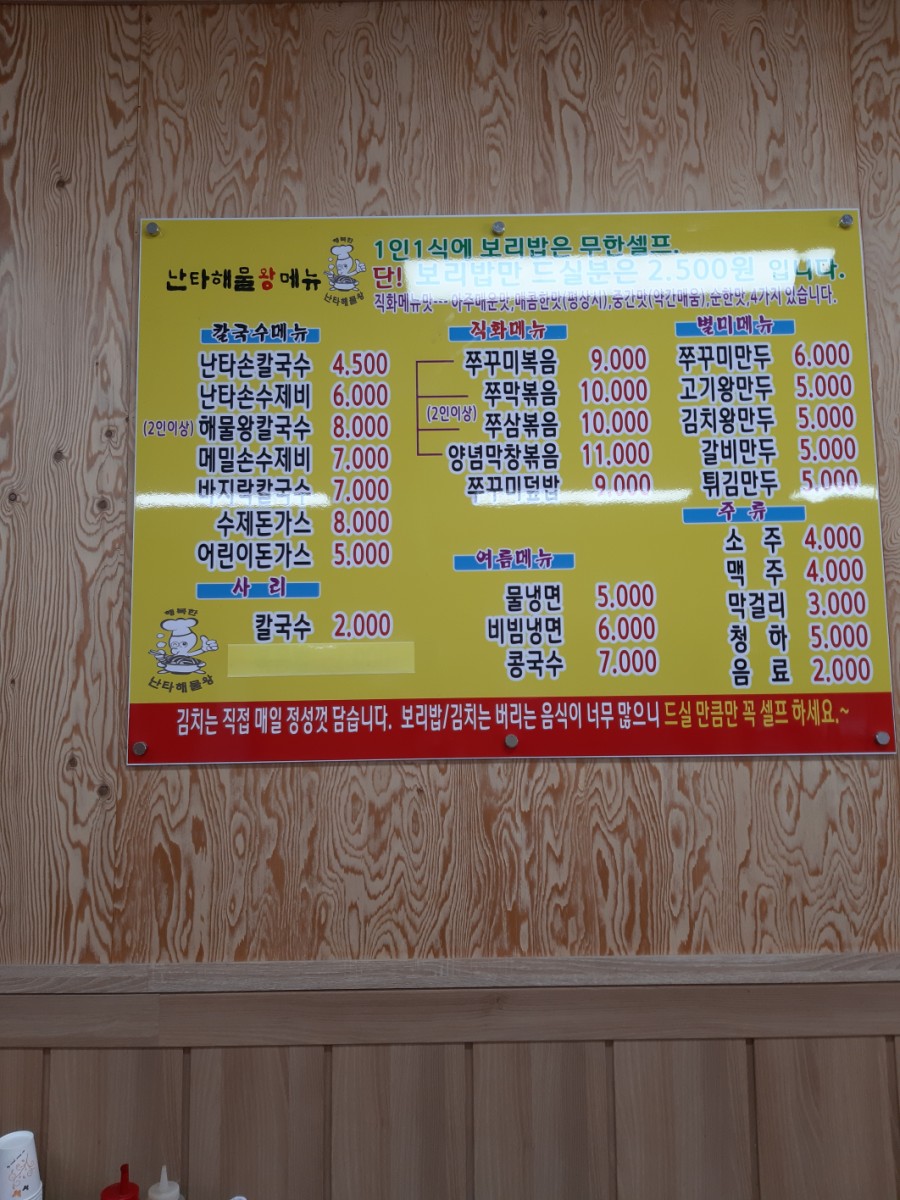 난타해물왕메뉴
행복한
난타해물왕
1인1식에 보리밥은 무한셀프.
단! 보리밥만 드실분은 2.500원 입니다.
직화메뉴맛--- 아주매운맛,매콤한맛(평상시),중간맛(약간매움),순한맛,4가지 있습니다.
칼국수메뉴
난타손칼국수 4.500
난타손수제비 6.000
(2인이상) 해물왕칼국수 8.000
메밀손수제비 7.000
바지락칼국수 7.000
수제돈가스 8.000
어린이돈가스 5.000
사 리
칼국수 2.000
행복한
난타해물왕
직화메뉴
쭈꾸미볶음 9.000
쭈막볶음 10.000
(2인이상)
쭈삼볶음 10.000
양념막창볶음 11.000
쭈꾸미덮밥 9.000
여름메뉴
물냉면 5.000
비빔냉면 6.000
콩국수 7.000
별미메뉴
쭈꾸미만두 6.000
고기왕만두 5.000
김치왕만두 5.000
갈비만두 5.000
튀김만두 5.000
주 류
소 주 4.000
맥 주 4.000
막걸리 3.000
청 하 5.000
음 료 2.000
김치는 직접 매일 정성껏 담습니다. 보리밥/김치는 버리는 음식이 너무 많으니 드실 만큼만 꼭 셀프 하세요.~